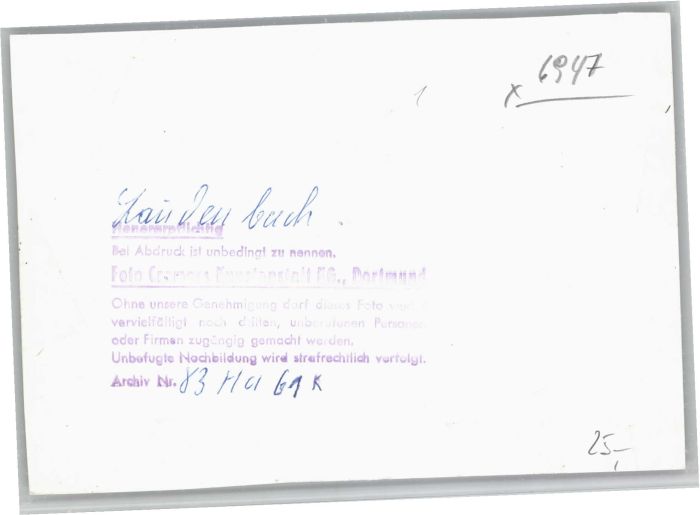 x 6947
1
Laudenbach
Honorarpflichtig
Bei Abdruck ist unbedingt zu nennen.
Foto Cramers Kunstanstalt KG., Dortmund
Ohne unsere Genehmigung darf dieses Foto
vervielfältigt noch dritten, unberufenen Personen
oder Firmen zugängig gemacht werden.
Unbefugte Nachbildung wird strafrechtlich verfolgt.
Archiv Nr. 83
25,-